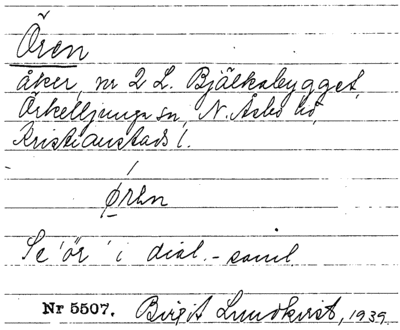 Ören
åker, nr 2 L. Bjälkabygget,
Örkelljunga sn, N. Åsbo hd,
Kristianstads l.
øren
Se 'ör' i dial.-saml
Nr 5507. Birgit Lundkvist, 1939.